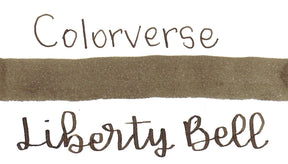 Colorverse
Liberty Bell